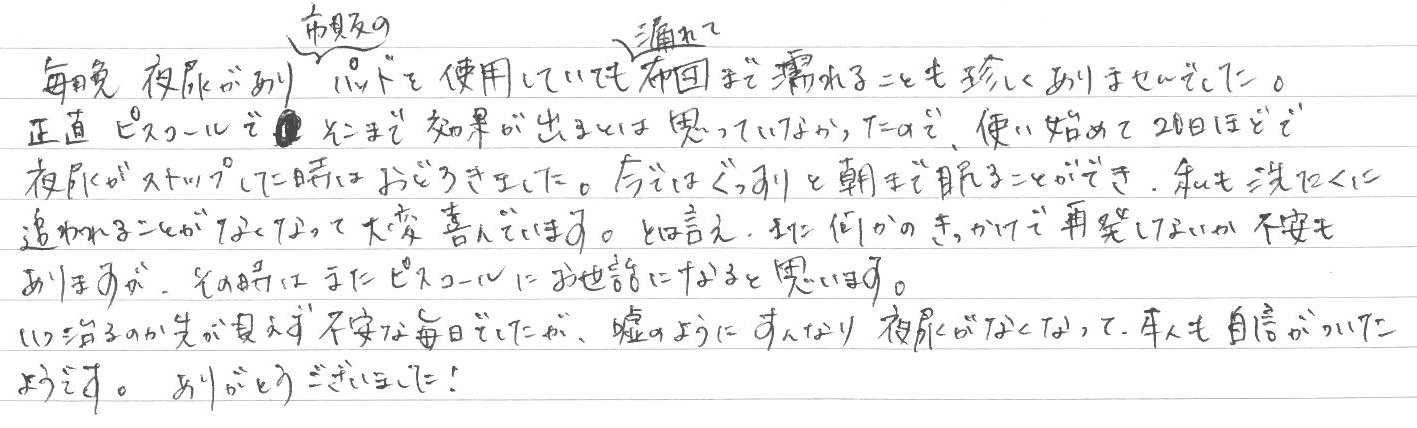 毎晩 夜尿があり 市販の パッドを使用していても 漏れて 布団まで濡れることも珍しくありませんでした。
正直 ピスコールで そこまで効果が出るとは思っていなかったので、使い始めて20日ほどで
夜尿がストップした時はおどろきました。今ではぐっすりと朝まで眠ることができ、私も洗たくに
追われることがなくなって大変喜んでいます。とは言え、また何かのきっかけで再発しないか不安も
ありますが、その時はまたピスコールにお世話になると思います。
いつ治るのか先が見えず不安な毎日でしたが、嘘のようにすんなり夜尿がなくなって、本人も自信がついた
ようです。ありがとうございました！